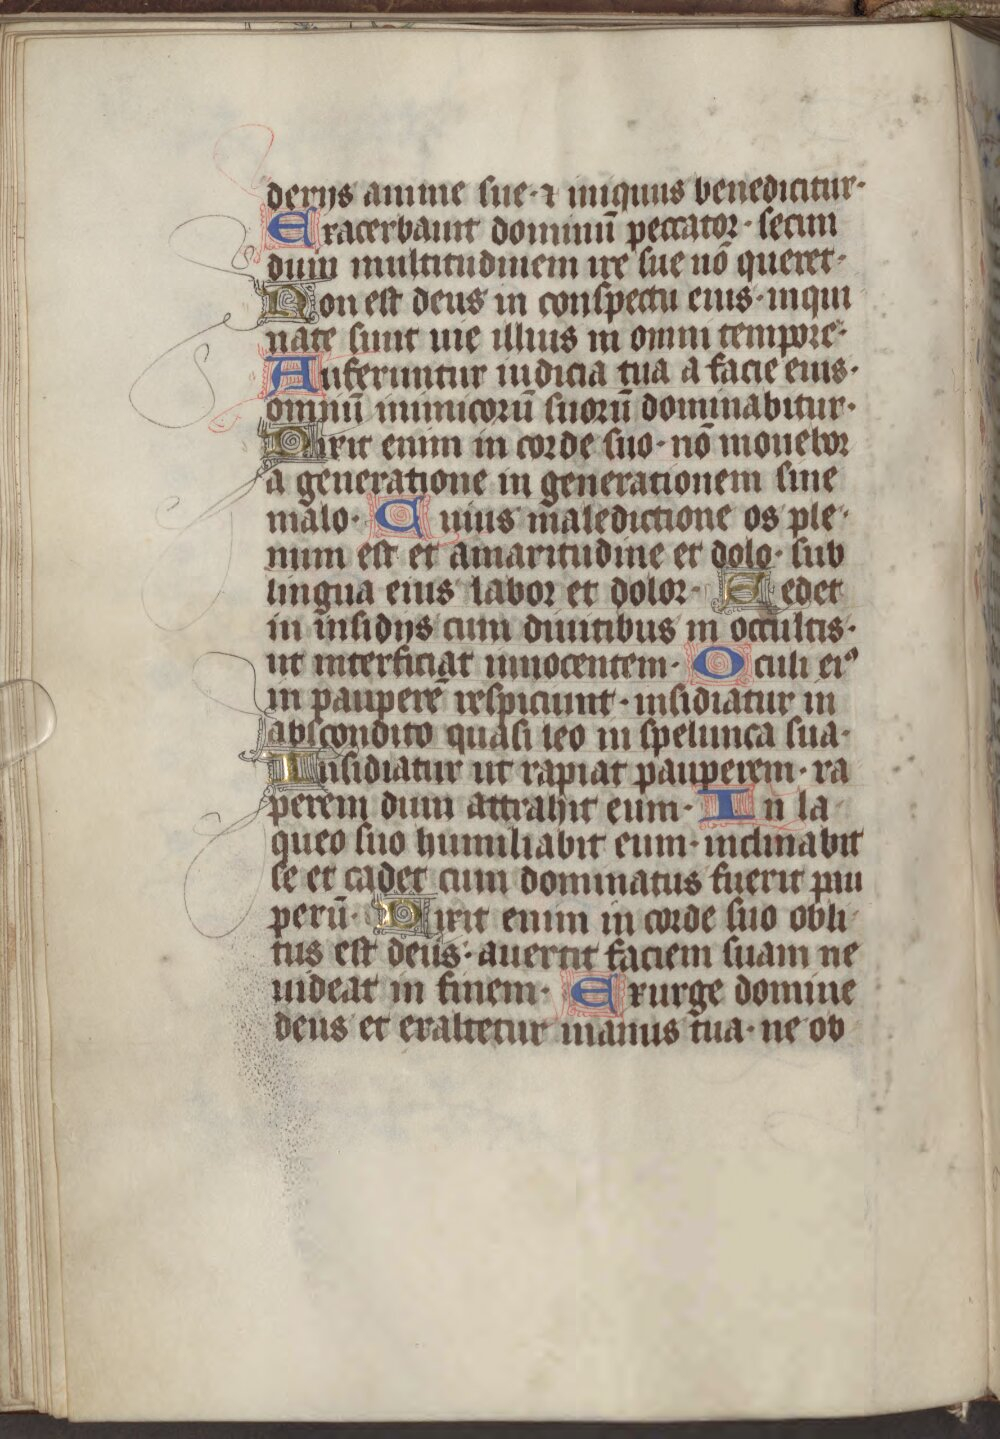 derijs anime sue· ⁊ iniquus benedicitur·
Exacerbauit dominū peccator· secun
dum multitudinem ire sue nō queret·
Non est deus in conspectu eius· inqui
nate sunt uie illius in omni tempore·
Auferuntur iudicia tua a facie eius·
omniū inimicorū suorū dominabitur·
Dixit enim in corde suo· nō mouebor
a generatione in generationem sine
malo· Cuius maledictione os ple
num est et amaritudine et dolo· sub
lingua eius labor et dolor· Sedet
in insidijs cum diuitibus in occultis·
ut interficiat innocentem· Oculi eiꝰ
in pauperē respiciunt· insidiatur in
abscondito quasi leo in spelunca sua·
Insidiatur ut rapiat pauperem· ra
perem dum attrahit eum· In la
queo suo humiliabit eum· inclinabit
se et cadet cum dominatus fuerit pau
perū· Dixit enim in corde suo obli
tus est deus· auertit faciem suam ne
uideat in finem· Exurge domine
deus et exaltetur manus tua· ne ob